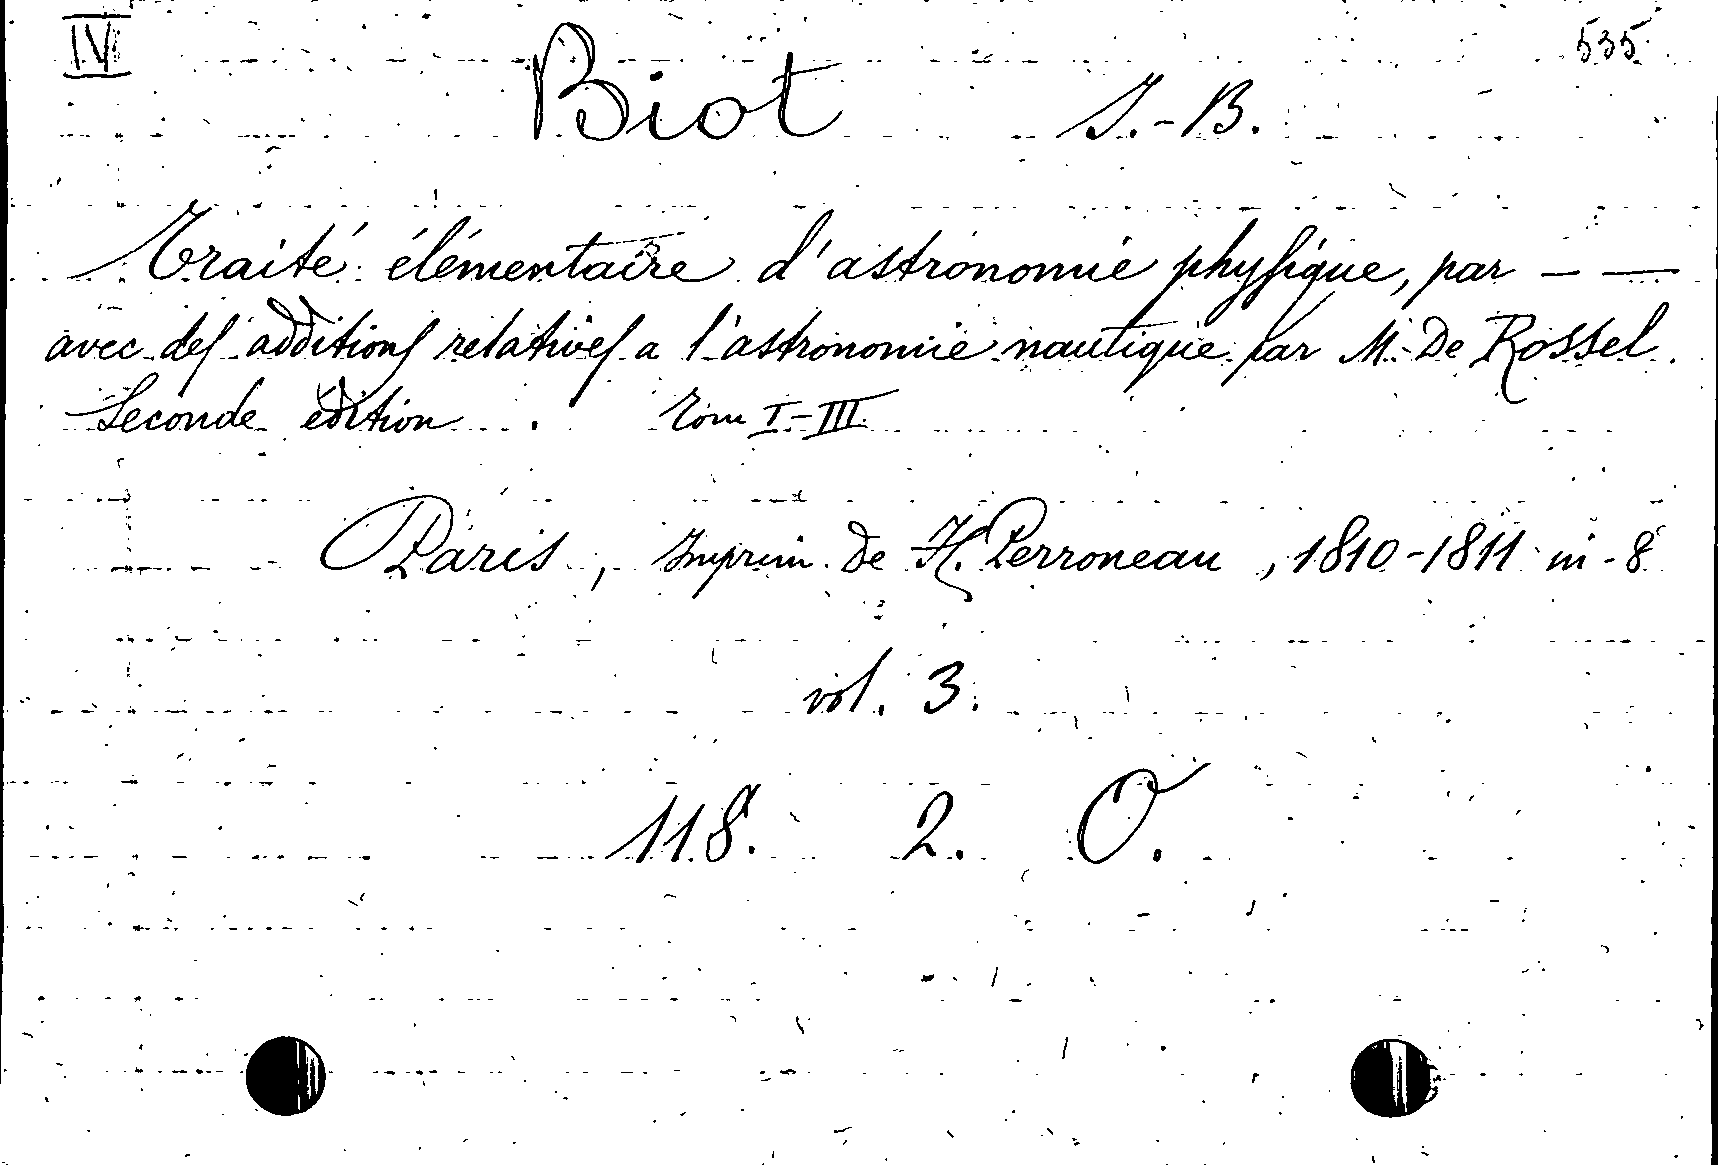 IV 535
Biot J.-B.
Traité élémentaire d'astronomie physique, par — —
avec des additions relatives a l'astronomie nautique par M. De Rossel.
Seconde édition. Tom I-III.
Paris, Imprim. de H. Perroneau, 1810-1811 in-8
vol. 3.
118. 2. O.